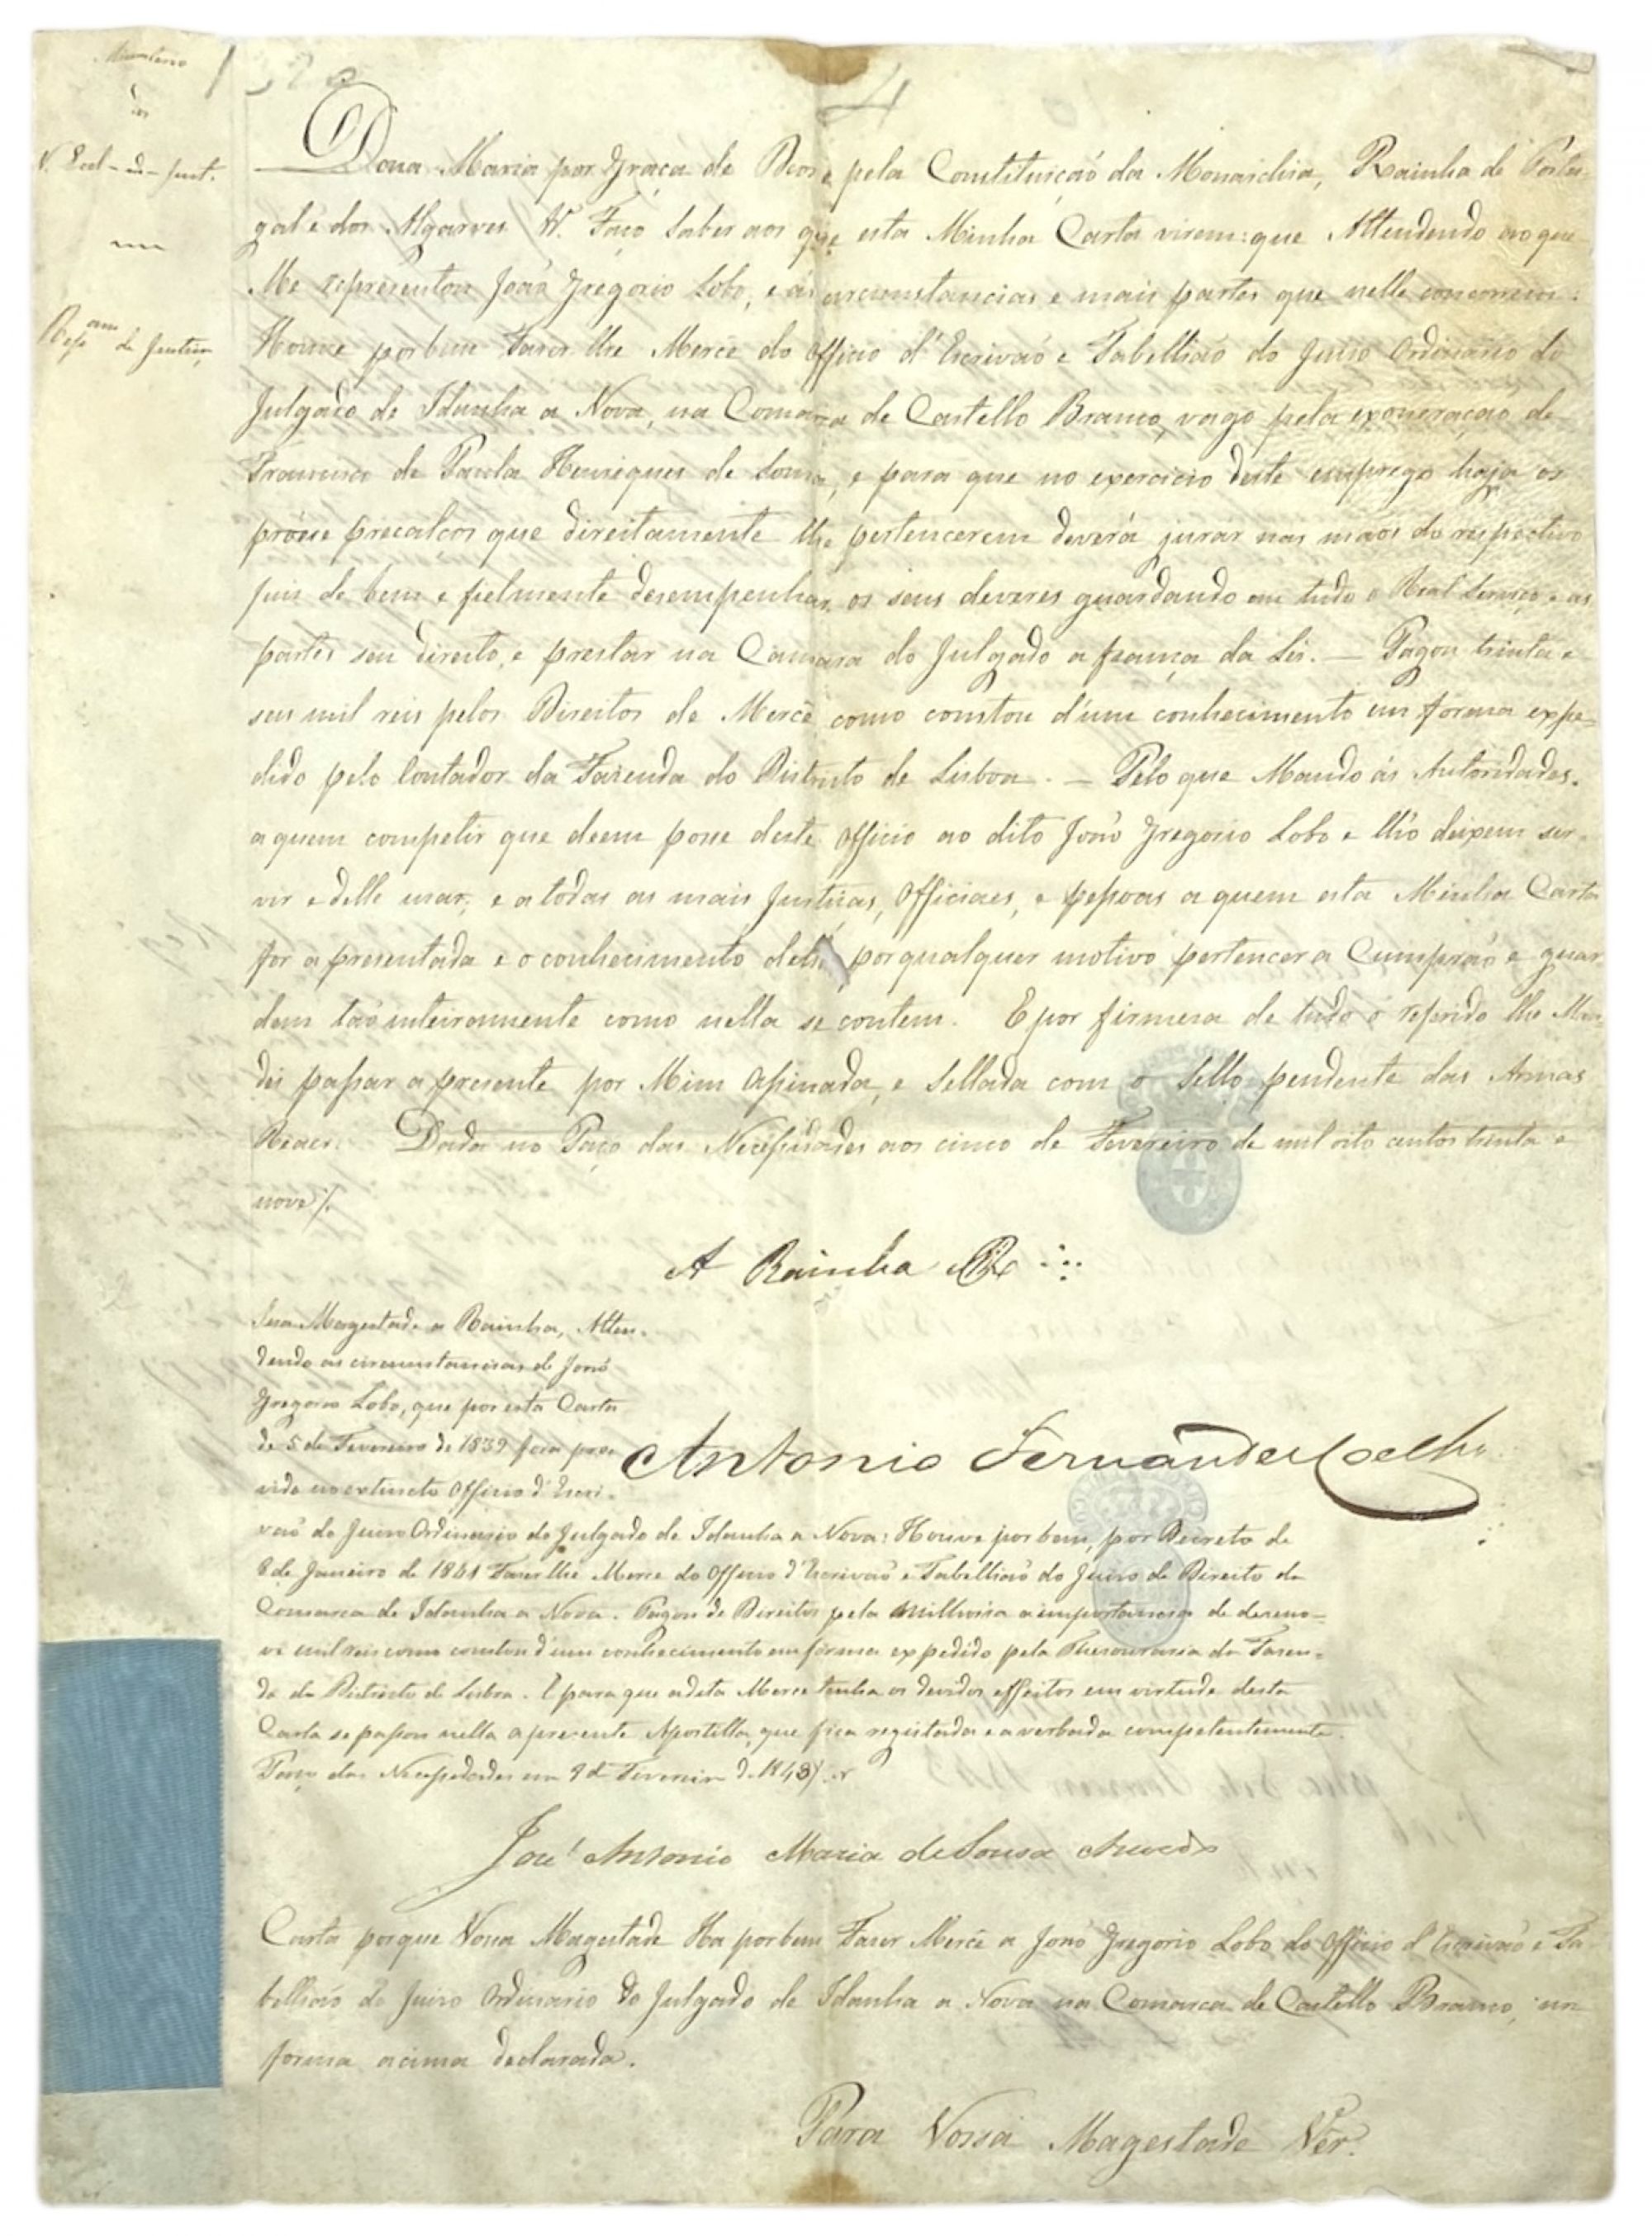 Ministerio
dos
N. Eccl. e de Just.
Rep.am de Justiça
Dona Maria por Graça de Deos e pela Constituição da Monarchia, Rainha de Portu-
gal e dos Algarves &. Faço saber aos que esta Minha Carta virem: que Attendendo ao que
Me representou João Gregorio Lobo, e ás circumstancias e mais partes que nelle concorrem:
Houve por bem Fazer-lhe Mercê do Officio d'Escrivão e Tabellião do Juizo Ordinario do
Julgado de Idanha a Nova, na Comarca de Castello Branco, vago pela exoneração de
Francisco de Paula Henriques de Sousa, e para que no exercicio deste emprego haja os
próes e precalços que direitamente lhe pertencerem deverá jurar nas mãos do respectivo
juiz de bem e fielmente desempenhar os seus deveres guardando em tudo o Real Serviço e ás
partes seu direito, e prestar na Camara do Julgado a fiança da Lei. — Pagou trinta e
seis mil reis pelos Direitos de Mercê como constou d'um conhecimento em forma expe-
dido pelo Contador da Fazenda do Districto de Lisboa. — Pelo que Mando ás Autoridades.
a quem competir que deem posse deste Officio ao dito João Gregorio Lobo e lh'o deixem ser-
vir e delle usar; e a todas as mais Justiças, Officiaes, e pessoas a quem esta Minha Carta
for apresentada e o conhecimento della por qualquer motivo pertencer a Cumprão e guar-
dem tão inteiramente como nella se contem. E por firmeza de tudo o referido lhe Man-
dei passar a presente por Mim Assinada, e Sellada com o Sello pendente das Armas
Reaes. Dada no Paço das Necessidades aos cinco de Fevereiro de mil oito centos trinta e
nove /.
A Rainha R
Sua Magestade a Rainha, Atten-
dendo as circumstancias de João
Gregorio Lobo, que por esta Carta
de 5 de Fevereiro de 1839 fora pro-
vido no extincto Officio d'Escri-
Antonio Fernandes Coelho
vão do Juizo Ordinario do Julgado de Idanha a Nova: Houve por bem, por Decreto de
8 de Janeiro de 1841 Fazer-lhe Merce do Officio d'Escrivão e Tabellião do Juizo de Direito da
Comarca de Idanha a Nova. Pagou de Direitos pela Milhoria a importancia de dezeno-
ve mil reis como constou d'um conhecimento em forma expedido pela Thesouraria da Fazen-
da do Districto de Lisboa. E para que a dita Merce tenha os devidos effeitos em virtude desta
Carta se passou nella a presente Apostilla, que fica registada e averbada competentemente.
Paço das Necessidades em 8 de Fevereiro de 1843 /.
José Antonio Maria de Sousa Azevedo
Carta porque Vossa Magestade Ha por bem Fazer Mercê a João Gregorio Lobo do Officio d'Escrivão e Ta-
bellião do Juizo Ordinario do Julgado de Idanha a Nova na Comarca de Castello Branco, na
forma acima declarada.
Para Vossa Magestade Vêr.